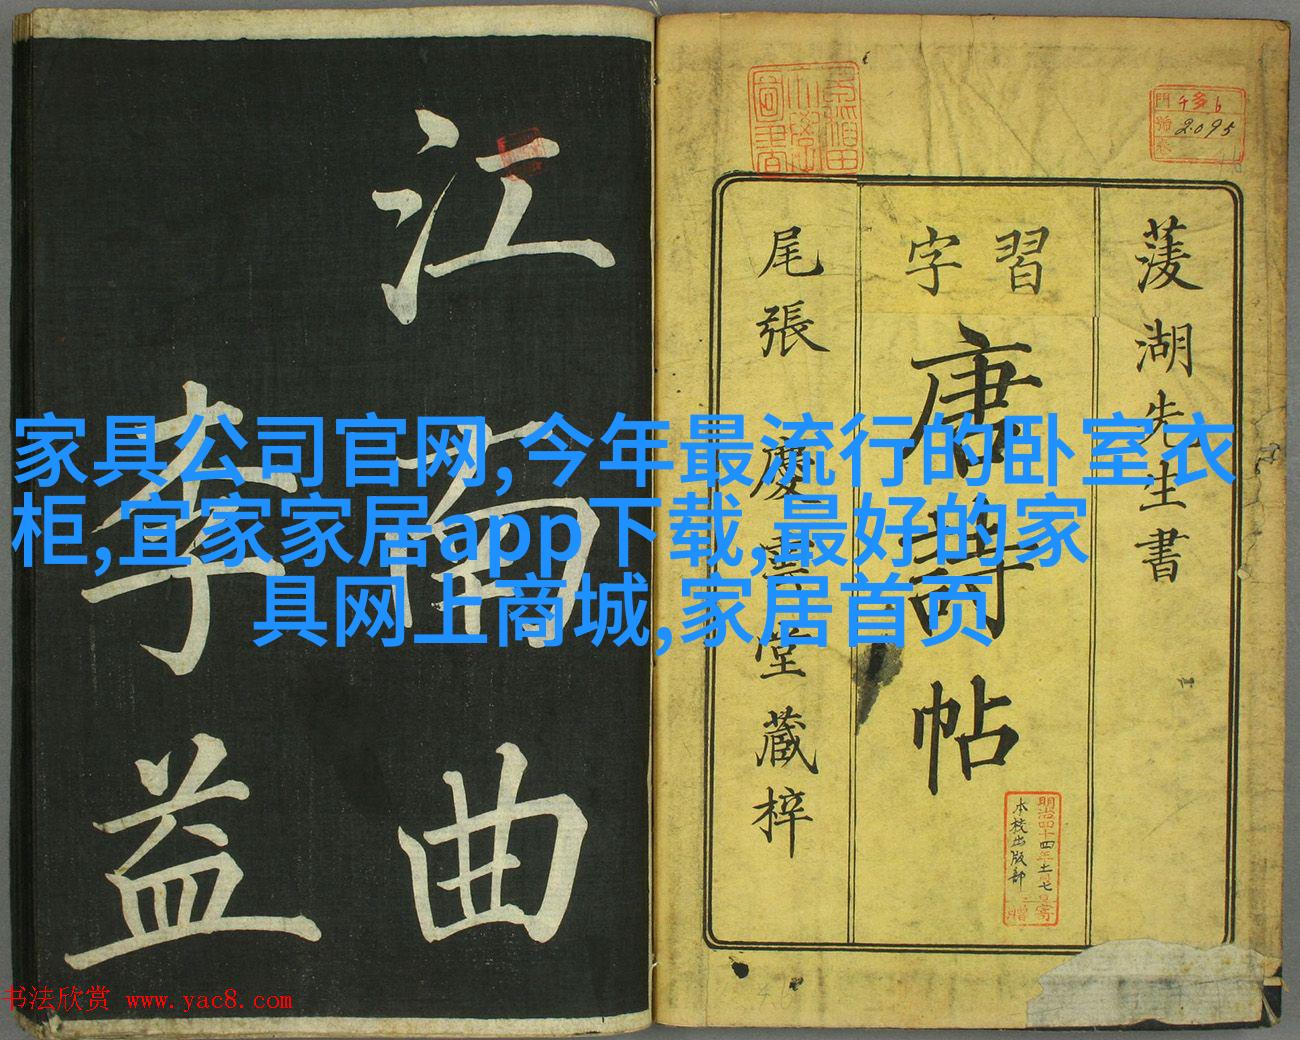 菱湖先生書
習字
唐詩帖
尾張 慶雲堂藏梓
江南曲
李益
早稲田大學圖書
門 チ多6
號 2095
卷
明治四十四年十二月七日
本校出版部
寄贈
家具公司官网,今年最流行的卧室衣
柜,宜家家居app下载,最好的家
具网上商城,家居首页
书法欣赏 www.yac8.com